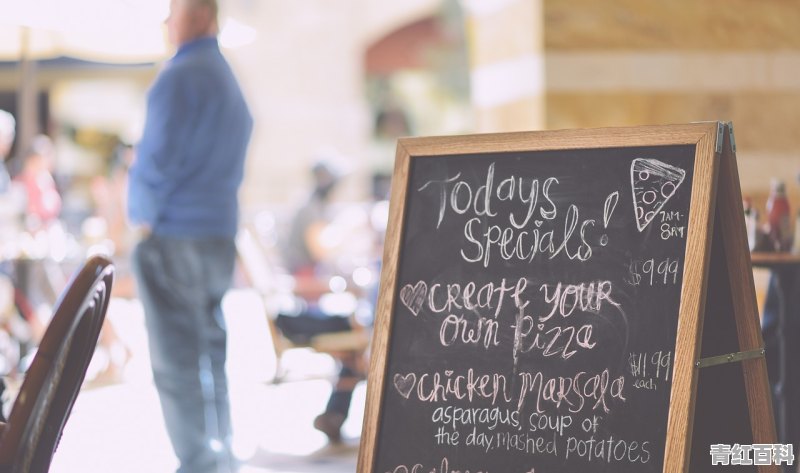 Todays
Specials!
7AM-
8PM
$9.99
CREATE YOUR
OWN PIZZA
$11.99
each
chicken Marsala
asparagus, soup of
the day, mashed potatoes
青红百科